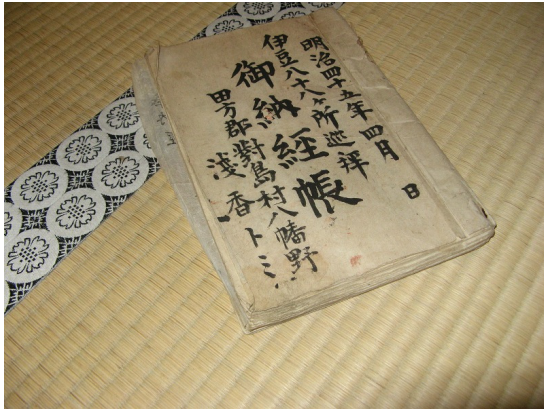 明治四十五年四月 日
伊豆八十八ヶ所巡拝
御納経帳
田方郡對島村八幡野
浅香トミ